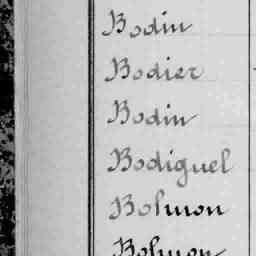 Bodin
Bodier
Bodin
Bodiguel
Bolmon
Bolmon